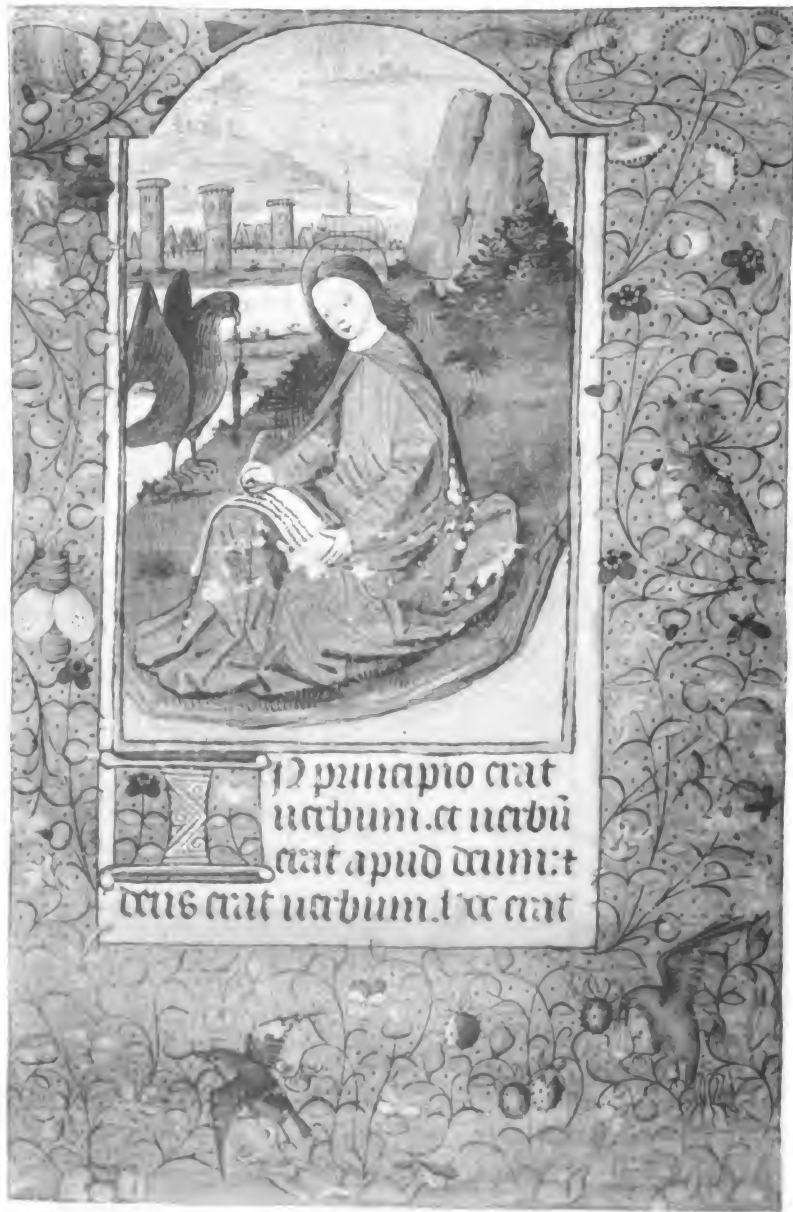 IN principio erat
uerbum. et uerbū
erat apud deum: ⁊
deus erat uerbum. hoc erat